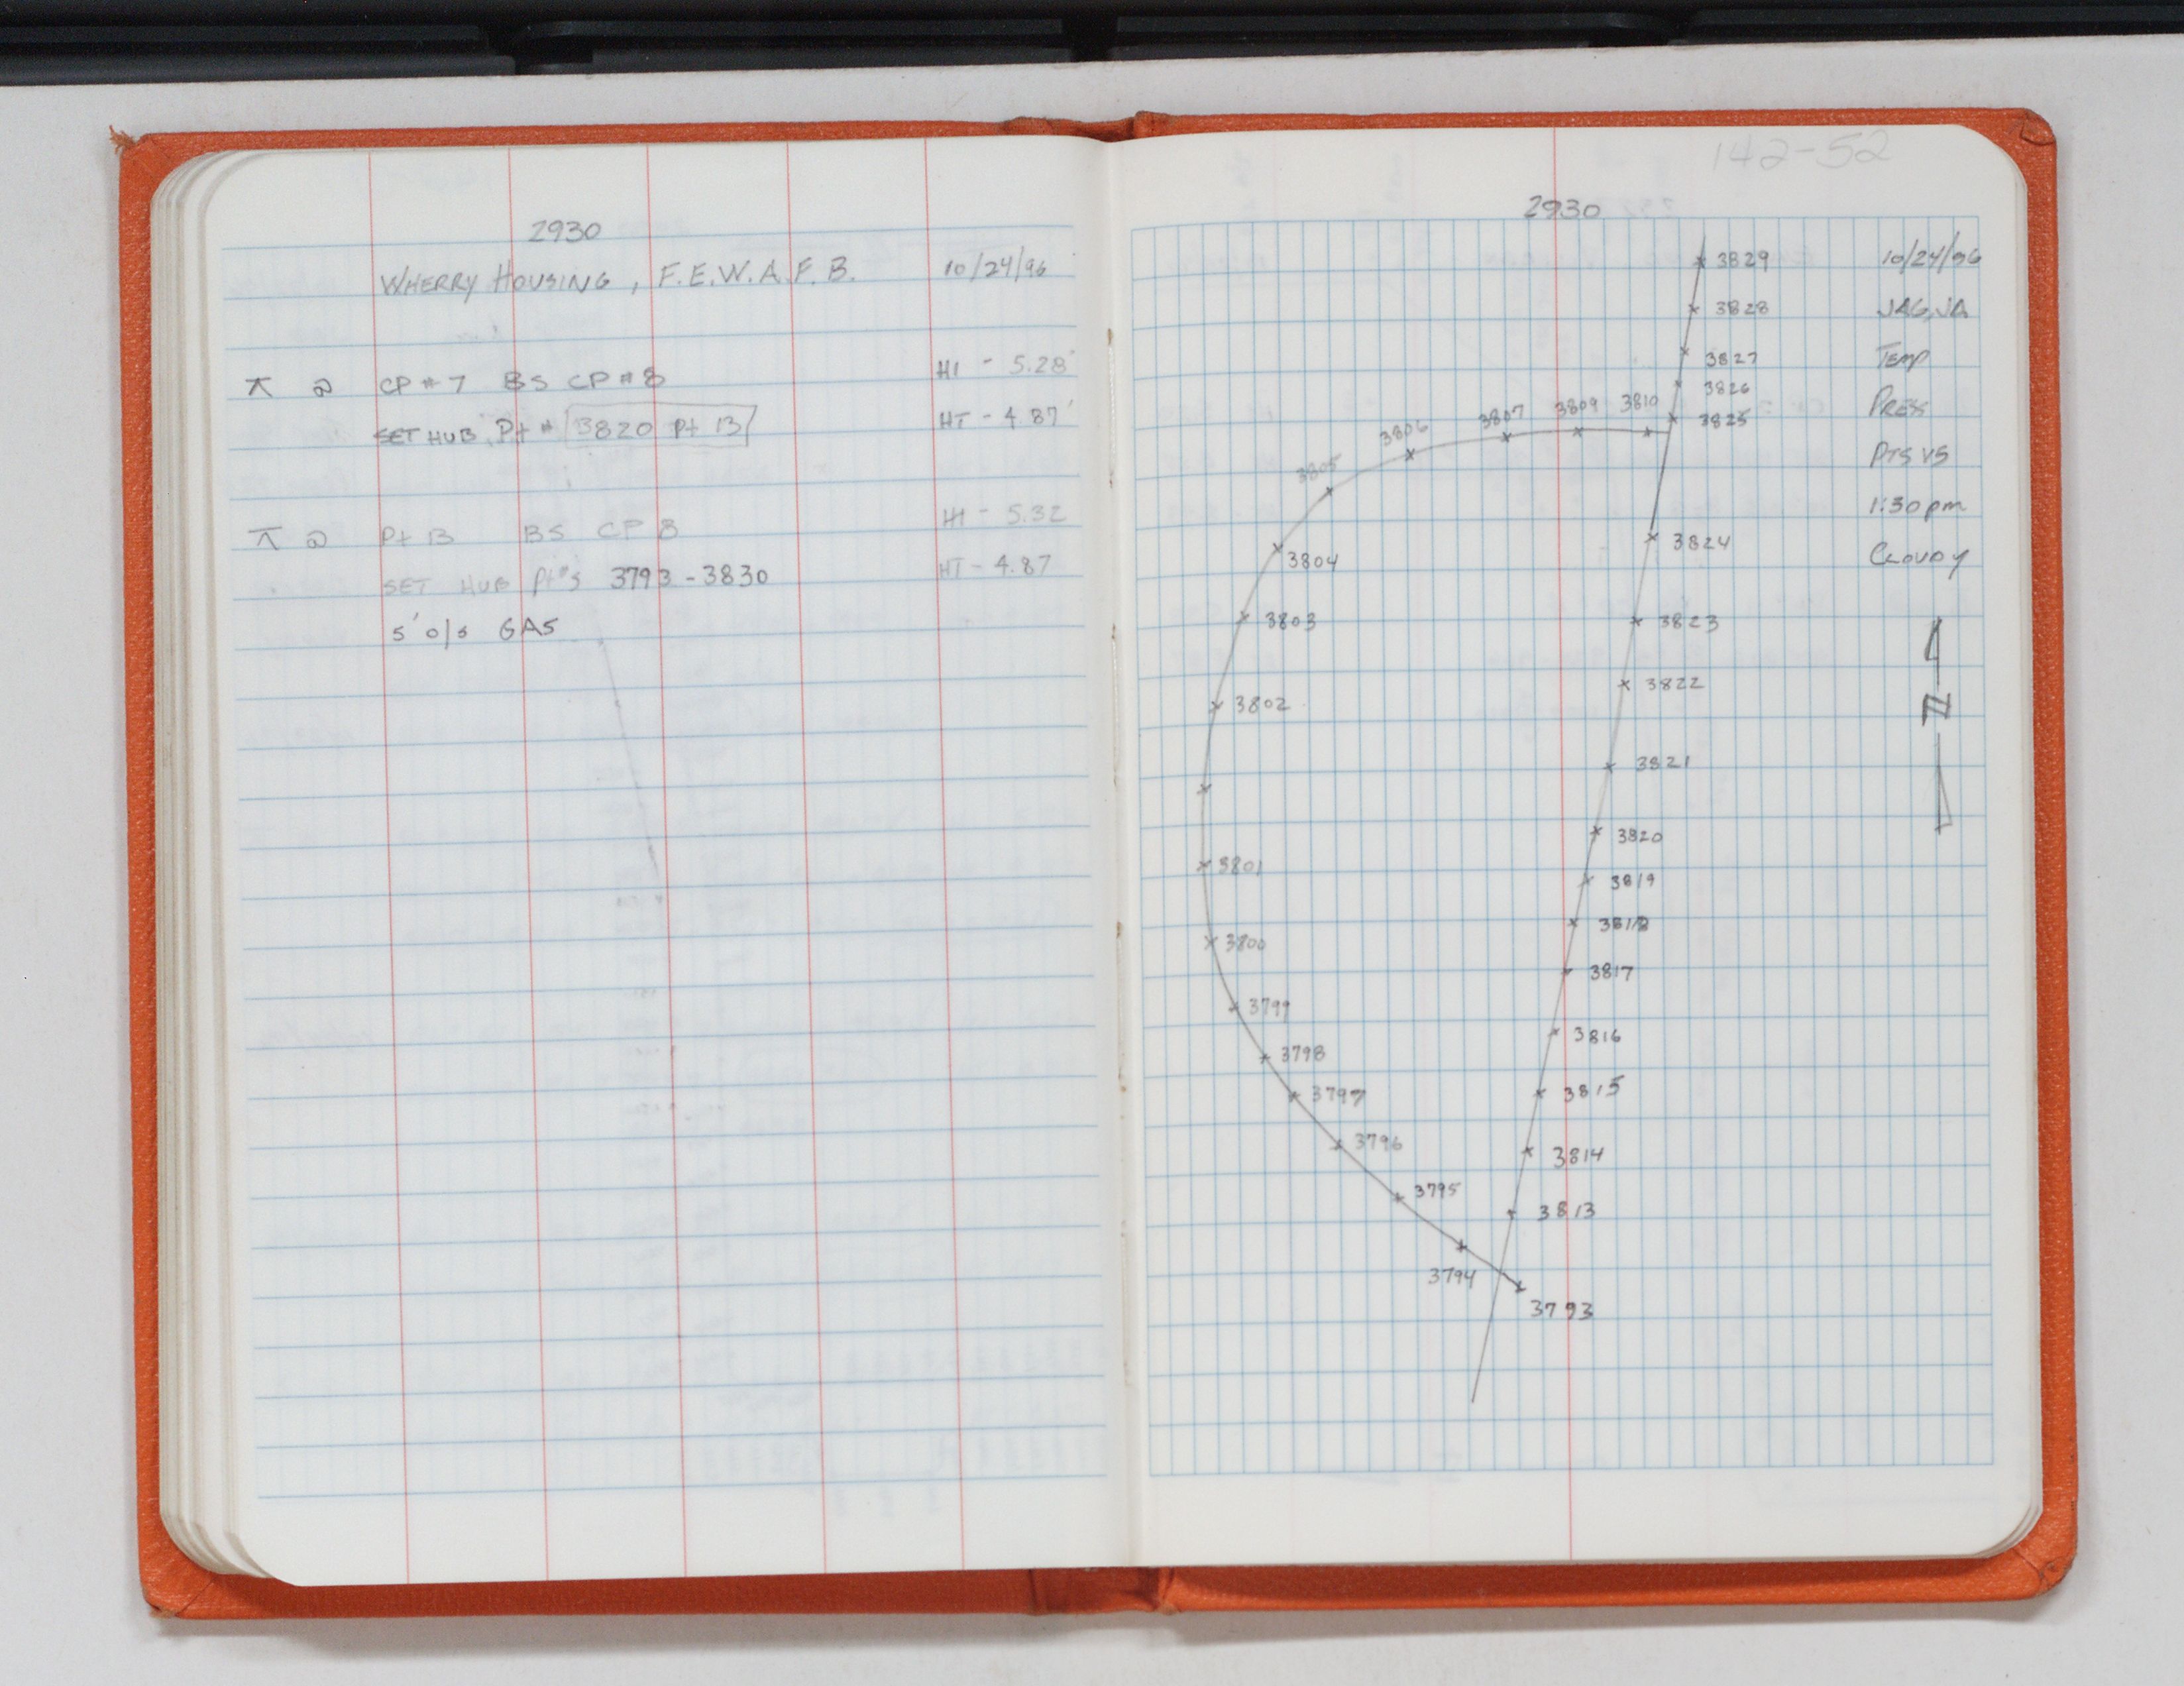 2930
WHERRY HOUSING, F.E.W.A.F.B. 10/24/96
⊼ @ CP #7 BS CP #8 HI - 5.28'
SET HUB Pt # 3820 Pt 13 HT - 4.87'
⊼ @ Pt 13 BS CP 8 HI - 5.32
SET HUB Pt#s 3793 - 3830 HT - 4.87
5' o/s GAS
142-52
2930
3829 10/24/96
3828 JAG, JA
3827 TEMP
3826
3810 PRESS
3809
3807
3825
3806
PTS VS
3805
1:30 pm
3824
CLOUDY
3804
3823
3803
3822
N
3802
3821
3820
3801
3819
3818
3800
3817
3799
3816
3798
3815
3797
3796
3814
3795
3813
3794
3793